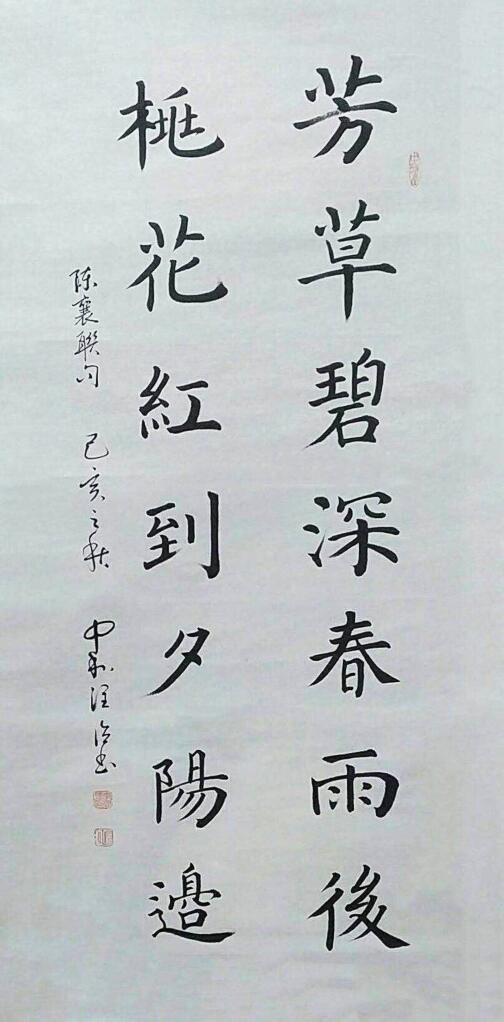 芳草碧深春雨後
桃花紅到夕陽邉
陈襄聯句 己亥之秋 中和汪治书